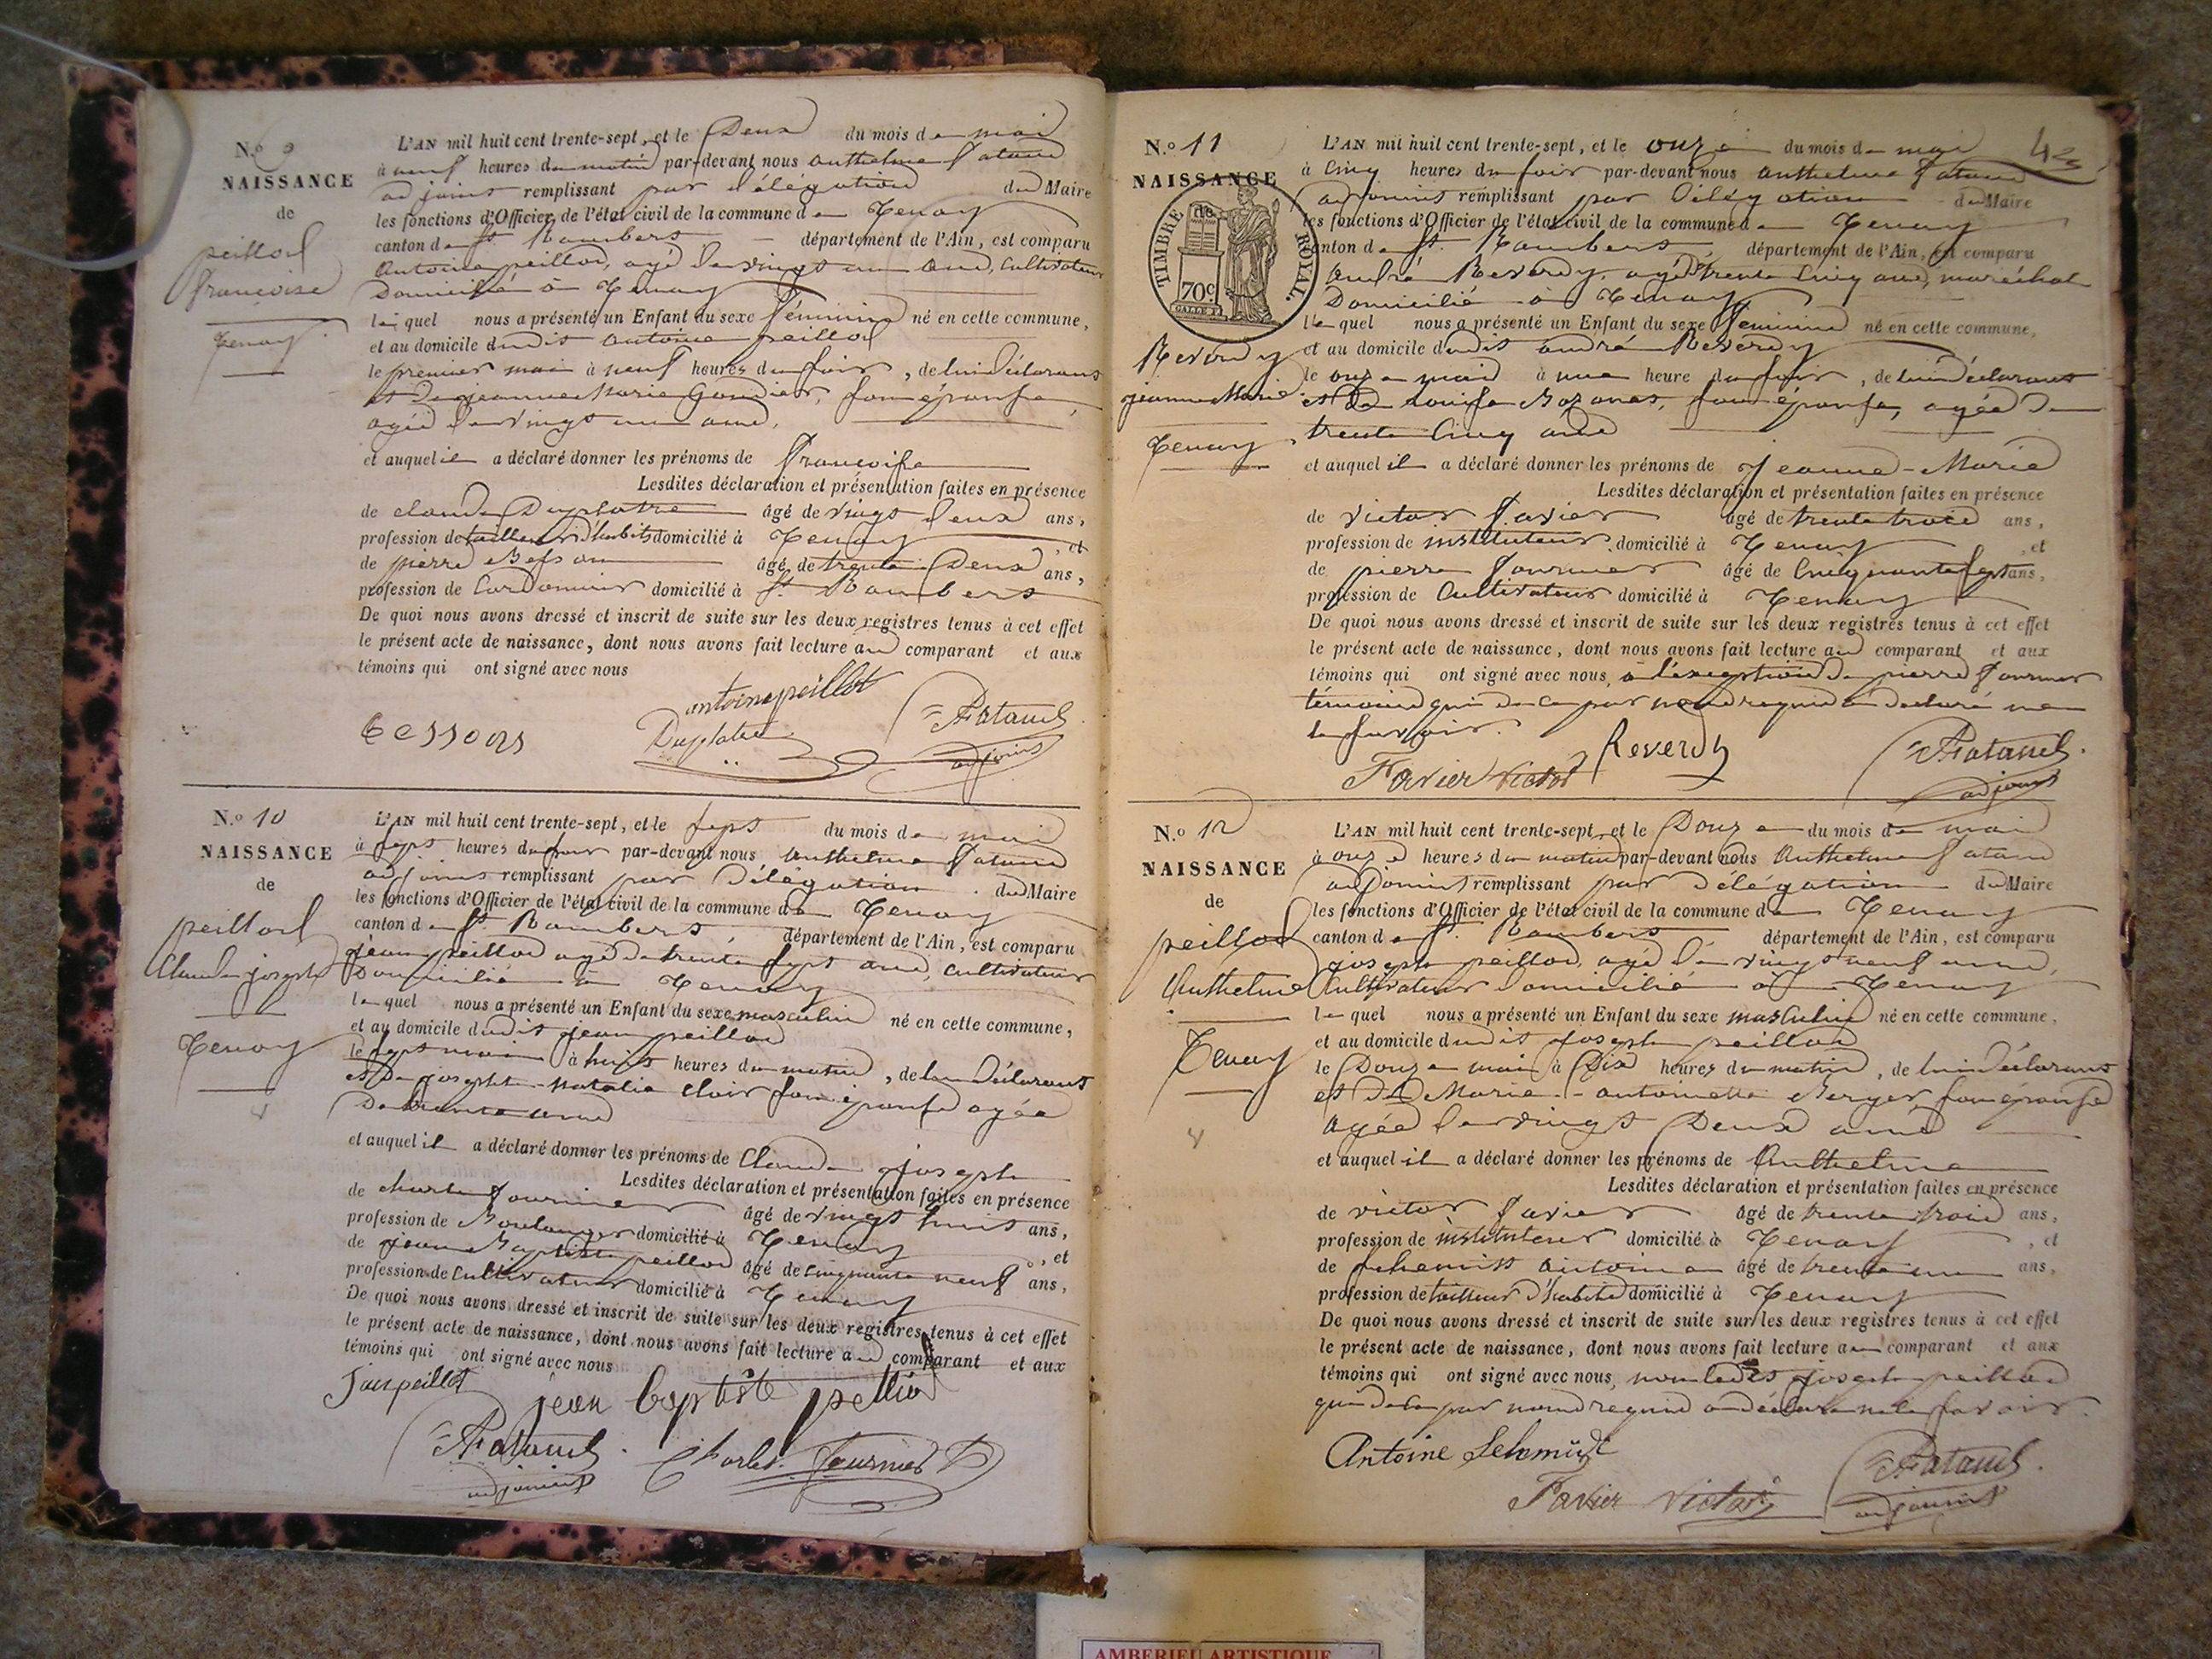 N.o 9
NAISSANCE
de
peillod
françoise
Tenay
L'AN mil huit cent trente-sept, et le Deux du mois de mai
à neuf heures du matin par-devant nous anthelme fatand
adjoint remplissant par délégation du Maire
les fonctions d'Officier de l'état civil de la commune de Tenay
canton de St Rambert département de l'Ain, est comparu
antoine peillod, agé de vingt un ans, cultivateur
Domicilié à Tenay
lequel nous a présenté un Enfant du sexe féminin né en cette commune,
et au domicile dudit antoine peillod
le premier mai à neuf heures du soir, de lui déclarant
et de jeanne Marie Gondier, son épouse,
agée de vingt un ans,
et auquel il a déclaré donner les prénoms de françoise
Lesdites déclaration et présentation faites en présence
de claude Duplatre âgé de vingt deux ans,
profession de tailleur d'habits domicilié à Tenay, et
de pierre Besson âgé de trente Deux ans,
profession de Cordonnier domicilié à St Rambert
De quoi nous avons dressé et inscrit de suite sur les deux registres tenus à cet effet
le présent acte de naissance, dont nous avons fait lecture au comparant et aux
témoins qui ont signé avec nous
antoine peillot
Bessons Duplatre Fatand
adjoint
N.o 10
NAISSANCE
de
peillod
Claude joseph
Tenay
L'AN mil huit cent trente-sept, et le sept du mois de mai
à sept heures du soir par-devant nous anthelme fatand
adjoint remplissant par délégation du Maire
les fonctions d'Officier de l'état civil de la commune de Tenay
canton de St Rambert département de l'Ain, est comparu
jean peillod agé de trente sept ans, cultivateur
Domicilié à Tenay
lequel nous a présenté un Enfant du sexe masculin né en cette commune,
et au domicile dudit jean peillod
le sept mai à huit heures du matin, de lui déclarant
et de josephte natalie clair son épouse agée
De trente ans
et auquel il a déclaré donner les prénoms de Claude joseph
Lesdites déclaration et présentation faites en présence
de charle fournier âgé de vingt huit ans,
profession de Boulanger domicilié à Tenay, et
de jean Baptiste peillod âgé de cinquante neuf ans,
profession de cultivateur domicilié à Tenay
De quoi nous avons dressé et inscrit de suite sur les deux registres tenus à cet effet
le présent acte de naissance, dont nous avons fait lecture au comparant et aux
témoins qui ont signé avec nous
Jean peillot jean baptiste peillod
Fatand Charles Fournier
adjoint
43
N.o 11
NAISSANCE
de
TIMBRE ROYAL.
70c
Reverdy
jeanne Marie
Tenay
L'AN mil huit cent trente-sept, et le onze du mois de mai
à cinq heures du soir par-devant nous anthelme fatand
adjoint remplissant par délégation du Maire
les fonctions d'Officier de l'état civil de la commune de Tenay
canton de St. Rambert département de l'Ain, est comparu
andré Reverdy, agé de trente cinq ans, maréchal
Domicilié à Tenay
lequel nous a présenté un Enfant du sexe féminin né en cette commune,
et au domicile dudit andré Reverdy
le onze mai à une heure du soir, de lui déclarant
et de Louise Bozonet, son épouse, agée de
trente cinq ans
et auquel il a déclaré donner les prénoms de Jeanne-Marie
Lesdites déclaration et présentation faites en présence
de victor favier âgé de trente trois ans,
profession de instituteur domicilié à Tenay, et
de pierre fournier âgé de cinquante sept ans,
profession de Cultivateur domicilié à Tenay
De quoi nous avons dressé et inscrit de suite sur les deux registres tenus à cet effet
le présent acte de naissance, dont nous avons fait lecture au comparant et aux
témoins qui ont signé avec nous, à l'exception de pierre fournier
témoin qui de ce par nous requis a déclaré ne
le savoir.
Favier victor Reverdy Fatand
adjoint
N.o 12
NAISSANCE
de
peillod
Anthelme
Tenay
L'AN mil huit cent trente-sept, et le Douze du mois de mai
à onze heures du matin par-devant nous Anthelme fatand
adjoint remplissant par délégation du Maire
les fonctions d'Officier de l'état civil de la commune de Tenay
canton de St. Rambert département de l'Ain, est comparu
joseph peillod, agé de vingt neuf ans,
Cultivateur Domicilié à Tenay
lequel nous a présenté un Enfant du sexe masculin né en cette commune,
et au domicile dudit joseph peillod
le Douze mai à Dix heures du matin, de lui déclarant
et de Marie-antoinette Berger, son épouse
agée de vingt Deux ans
et auquel il a déclaré donner les prénoms de Anthelme
Lesdites déclaration et présentation faites en présence
de victor favier âgé de trente trois ans,
profession de instituteur domicilié à Tenay, et
de schemitt antoine âgé de trente un ans,
profession de tailleur d'habits domicilié à Tenay
De quoi nous avons dressé et inscrit de suite sur les deux registres tenus à cet effet
le présent acte de naissance, dont nous avons fait lecture au comparant et aux
témoins qui ont signé avec nous, non ledit joseph peillod
qui de ce par nous requis a déclaré ne le savoir.
Antoine Schmidt
Favier Victor Fatand
adjoint
AMBERIEU ARTISTIQUE